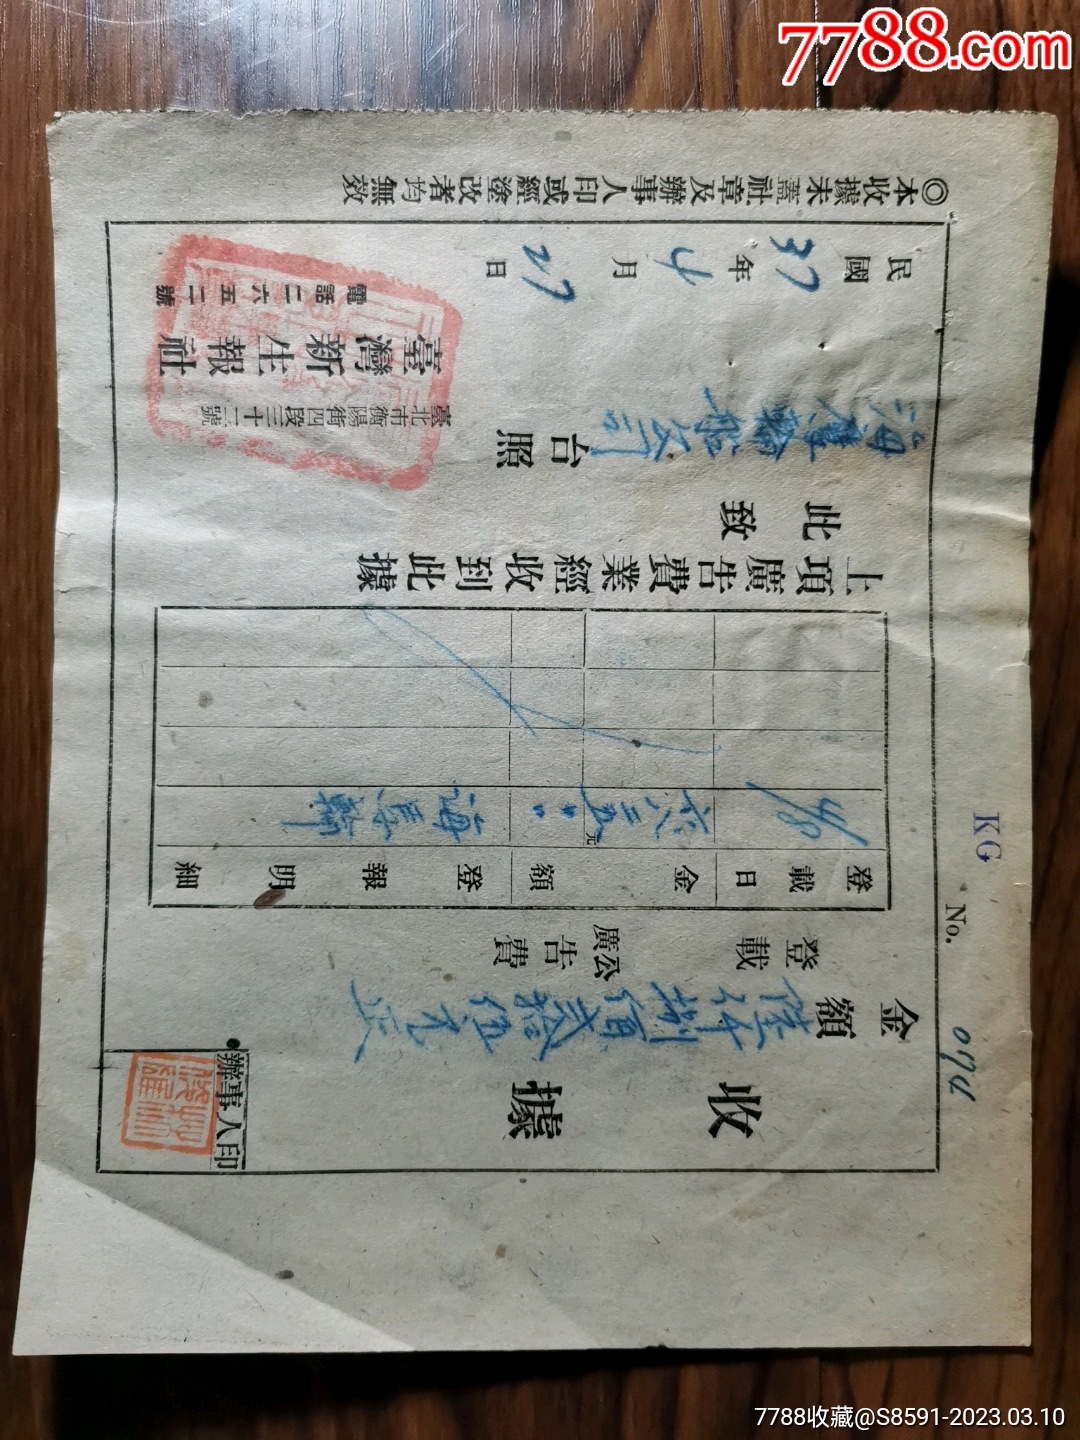 7788.com
KG
No. 074
收據
金額 陸仟捌佰貳拾伍元正
登載
廣告費
公
登載日 金額 登報明細
元
上項廣告費業經收到此據
此致
台照
臺北市衡陽街四段三十二號
臺灣新生報社
電話二六五二號
民國37年4月27日
◎本收據未蓋社章及辦事人印或經塗改者均無效
辦事人印
7788收藏@S8591-2023.03.10